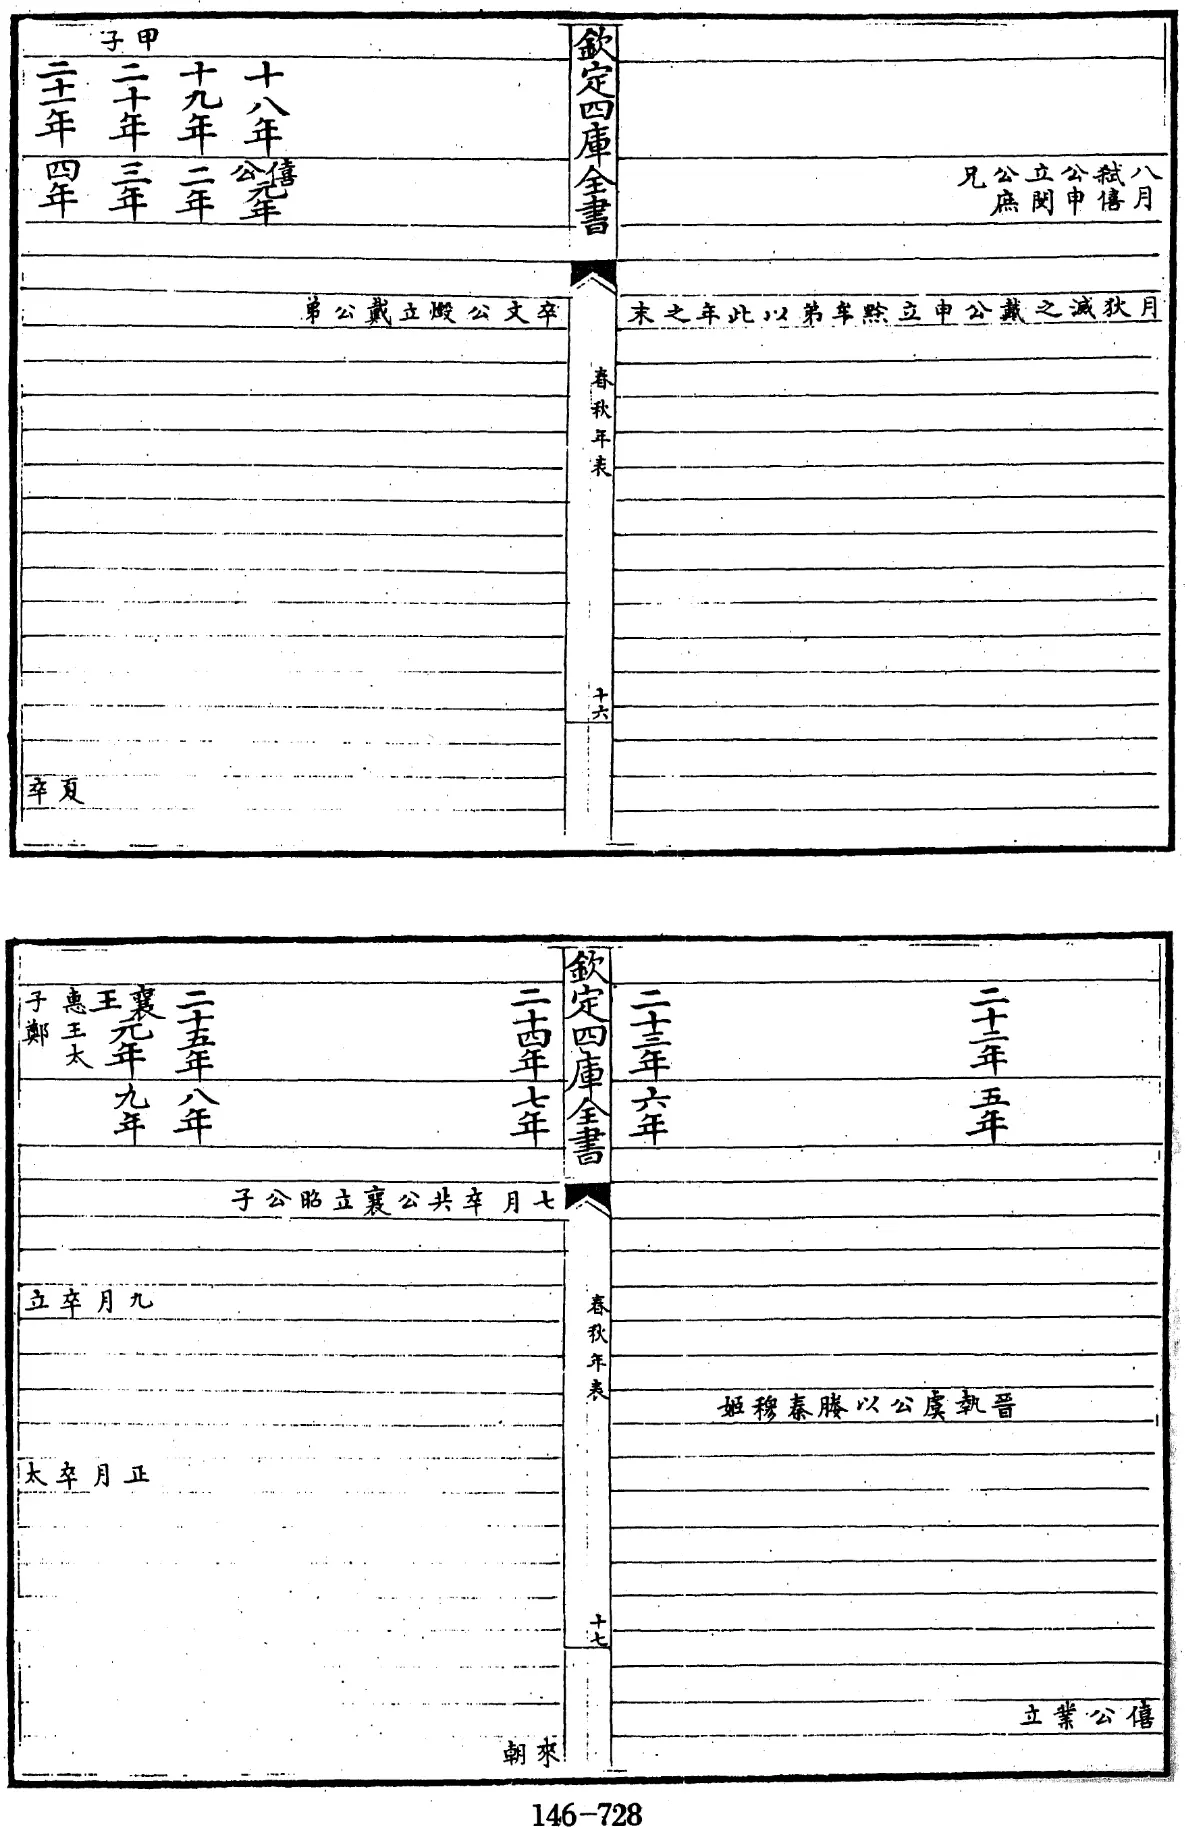 八月弑僖公申立閔公庶兄
月狄滅之戴公申立黔牟弟以此年之末
欽定四庫全書
春秋年表
十六
甲子
十八年
僖公元年
十九年
二年
二十年
三年
二十一年
四年
卒文公燬立戴公弟
夏卒
二十二年
五年
二十三年
六年
晉執虞公以媵秦穆姬
僖公業立
欽定四庫全書
春秋年表
十七
二十四年
七年
二十五年
八年
襄王元年
惠王太子鄭
九年
七月卒共公襄立昭公子
九月卒立
正月卒太
來朝
146-728